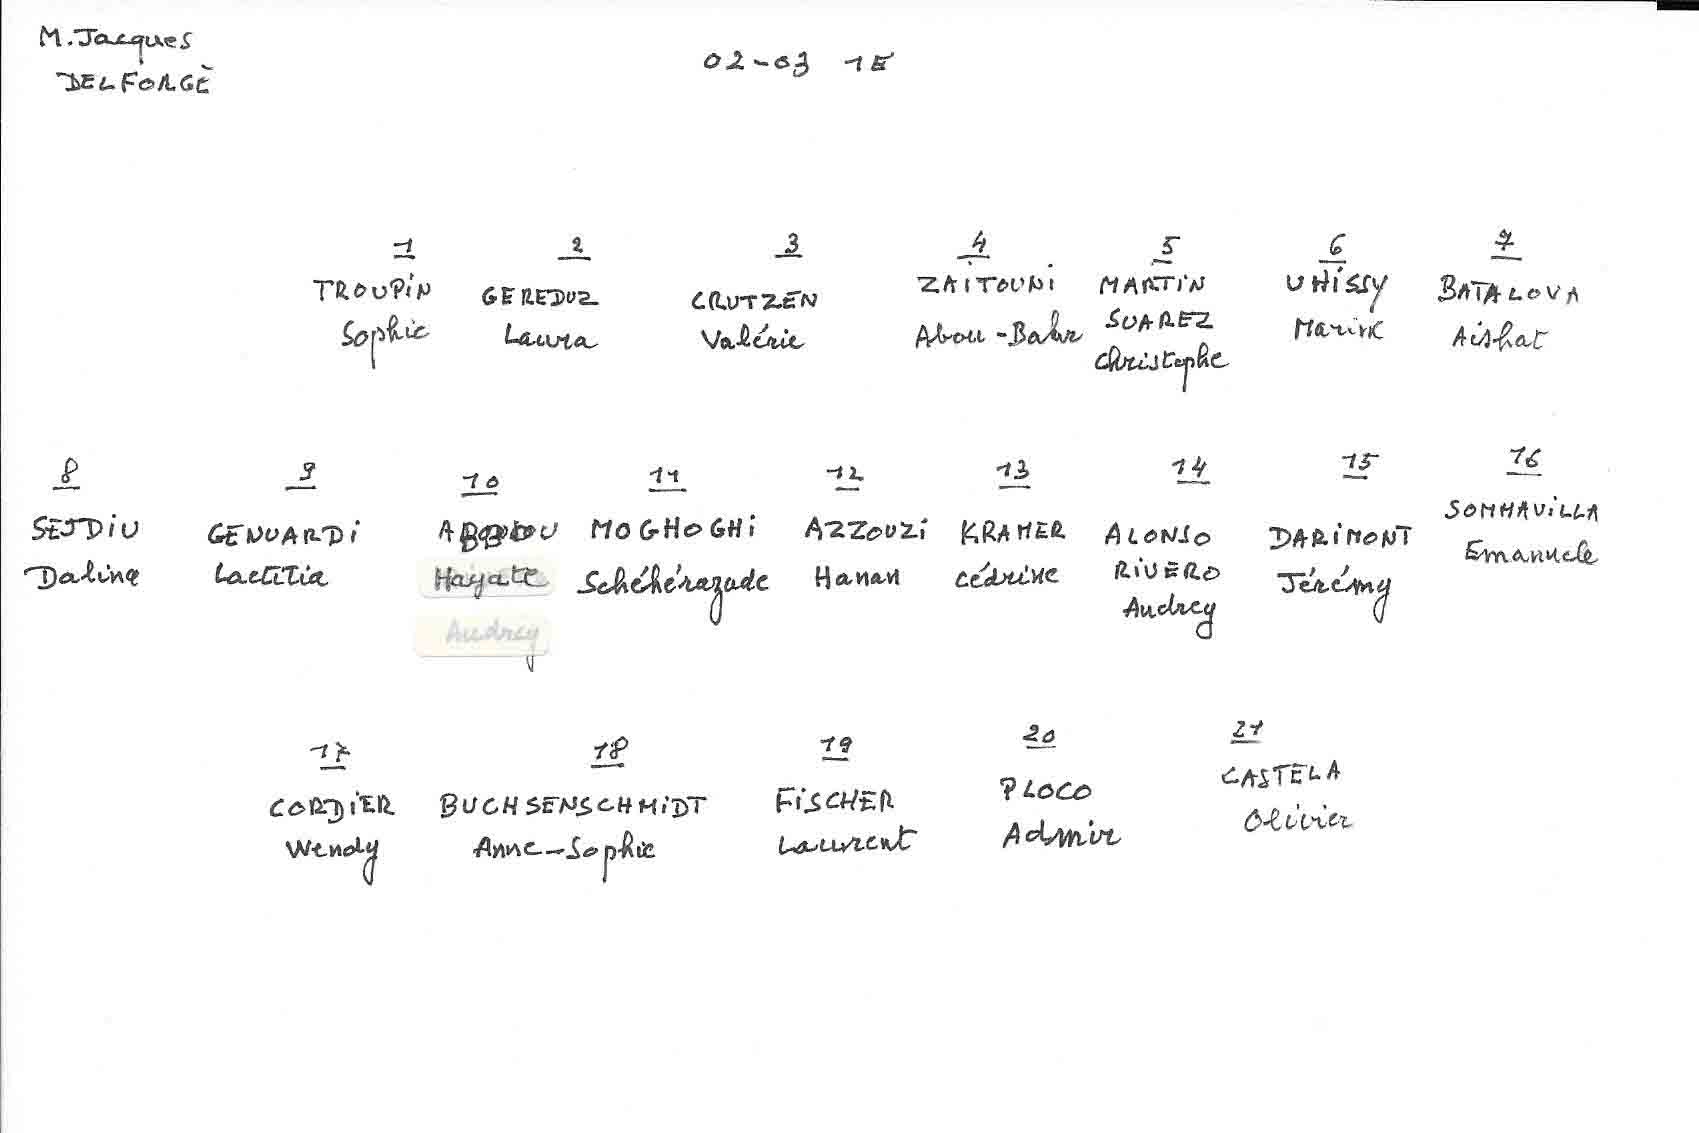 M. Jacques
DELFORGE
02-03 1E
1 2 3 4 5 6 7
TROUPIN GEREDUZ CRUTZEN ZAITOUNI MARTIN UHISSY BATALOVA
Sophie Laura Valérie Abou-Bakr SUAREZ Marine Aishat
Christophe
8 9 10 11 12 13 14 15 16
SEJDIU GENUARDI MOGHOGHI AZZOUZI KRAMER ALONSO DARIMONT SOMMAVILLA
Dalina Laetitia Hayate Schéhérazade Hanan Cédrine RIVERO Jérémy Emanuele
Audrey Audrey
17 18 19 20 21
CORDIER BUCHSENSCHMIDT FISCHER PLOCO CASTELA
Wendy Anne-Sophie Laurent Admir Olivier